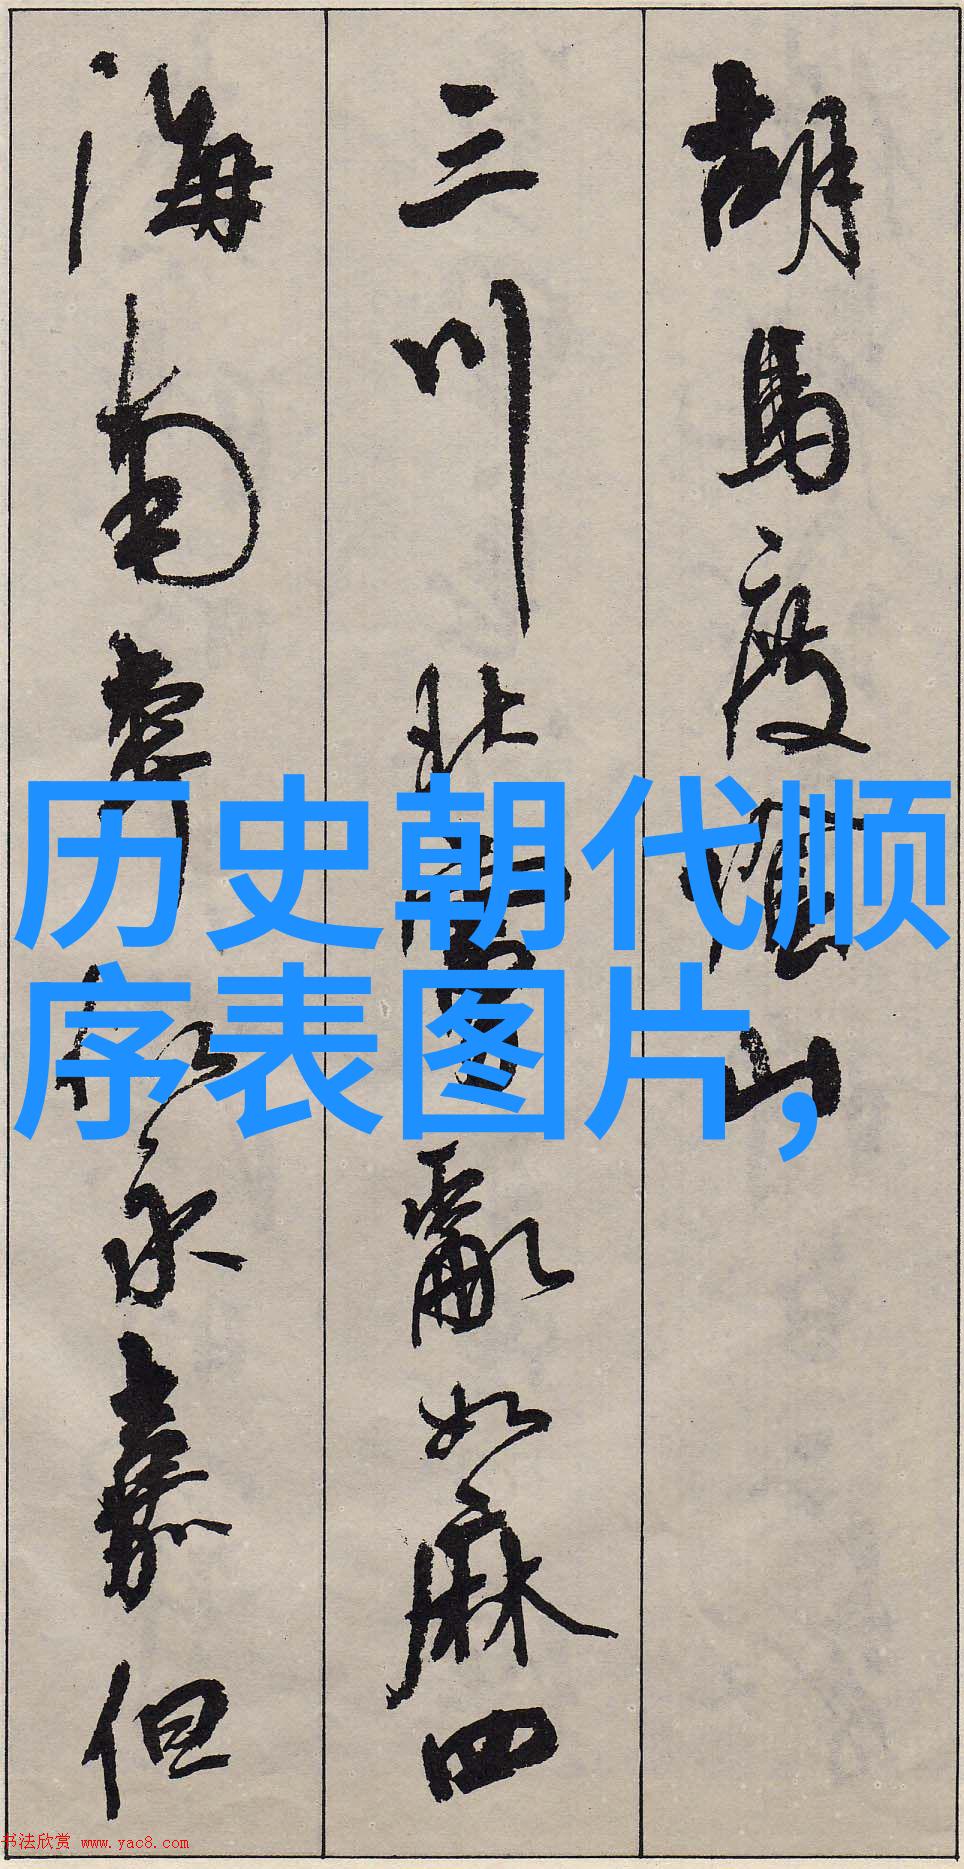 胡馬度陰山
三川北虜亂如麻四
海南奔似永嘉但
历史朝代顺
序表图片,
书法欣赏 www.yac8.com